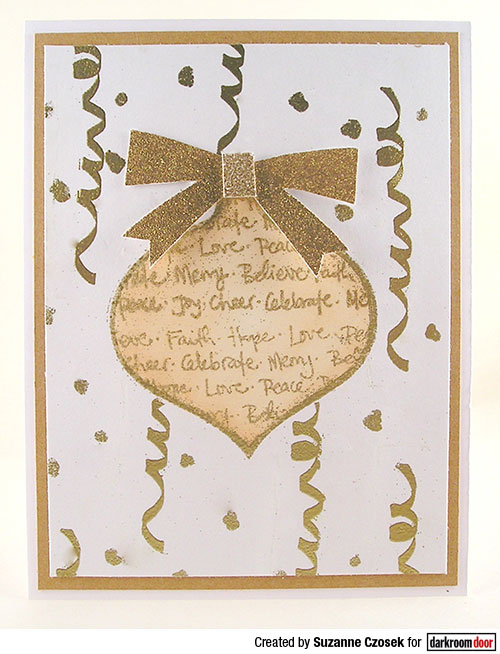 Celebrate
Love · Peace
Merry · Believe · Faith
Peace · Joy · Cheer · Celebrate · Me
Love · Faith · Hope · Love · Pea
Cheer · Celebrate · Merry · Bel
Love · Peace
Beli
Created by Suzanne Czosek for darkroomdoor